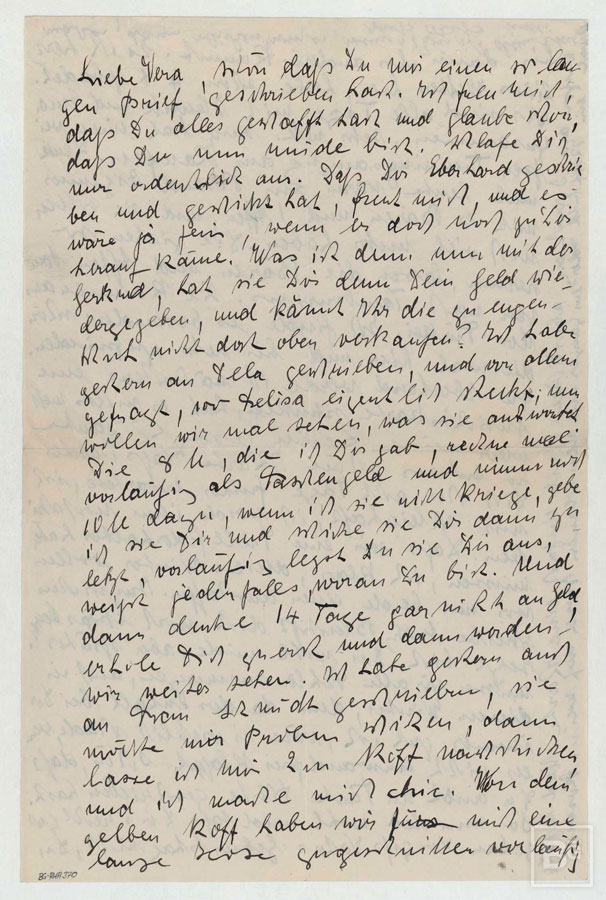 Liebe Vera, schön daß Du mir einen so lan-
gen Brief geschrieben hast. Ich freu mich,
daß Du alles geschafft hast und glaube schon,
daß Du nun müde bist. Schlafe Dich
nur ordentlich aus. Daß Dir Eberhard geschrie
ben und geschickt hat, freut mich, und es
wäre ja fein, wenn er doch noch zu Dir
herauf käme. Was ist denn nun mit der
Gertrud, hat sie Dir denn Dein Geld wie-
dergegeben, und könnt Ihr die zu engen
Schuh nicht dort oben verkaufen? Ich habe
gestern an Tela geschrieben, und vor allem
gefragt, wo Delisa eigentlich steckt; nun
wollen wir mal sehen, was sie antwortet
Die 8 M, die ich Dir gab, rechne mal
vorläufig als Taschengeld und nimm noch
10 M dazu, wenn ich sie nicht kriege, gebe
ich sie Dir und schicke sie Dir dann zu
letzt, vorläufig legst Du sie Dir aus,
weißt jedenfalls, woran Du bist. Und
dann denke 14 Tage garnicht an Geld,
erhole Dich zuerst und dann werden
wir weiter sehen. Ich habe gestern auch
an Fram Schmidt geschrieben, sie
möchte mir Proben schicken, dann
lasse ich mir 2 m Stoff nachschicken
und ich mache mich chic. Von dem
gelben Stoff haben wir mich eine
lange Hose zugeschnitten vorläufig
BG-RHA 370